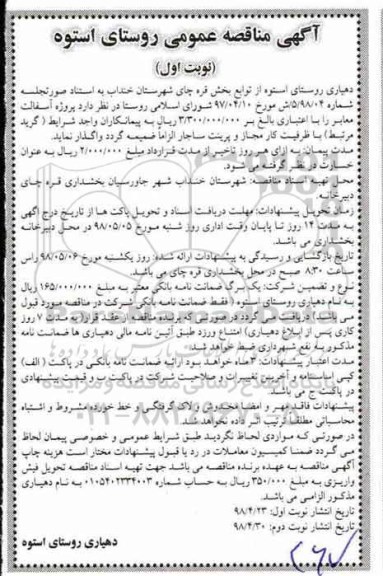 آگهی مناقصه عمومی روستای استوه
(نوبت اول)
دهیاری روستای استوه از توابع بخش قره چای شهرستان خنداب به استناد صورتجلسه
شماره ۵/۹۸/۰۴/ش مورخ ۹۷/۰۴/۱۰ شورای اسلامی روستا در نظر دارد پروژه آسفالت
معابر را با اعتباری بالغ بر ۳/۳۰۰/۰۰۰/۰۰۰ ریال به پیمانکاران واجد شرایط ( گرید
مرتبط) با ظرفیت کار مجاز و پرینت ساجار الزاما ضمیمه گردد واگذار نماید.
مدت پیمان: به ازای هر روز تاخیر از مدت قرارداد مبلغ ۲/۰۰۰/۰۰۰ ریال به عنوان
خسارت در نظر گرفته می شود.
محل تهیه اسناد مناقصه: شهرستان خنداب شهر جاورسیان بخشداری قره چای
دبیرخانه
زمان تحویل پیشنهادات: مهلت دریافت اسناد و تحویل پاکت ها از تاریخ درج آگهی
به مدت ۱۴ روز تا پایان وقت اداری روز شنبه مورخ ۹۸/۰۵/۰۵ در محل دبیرخانه
بخشداری می باشد.
تاریخ بازگشایی و رسیدگی به پیشنهادات ارائه شده: روز یکشنبه مورخ ۹۸/۰۵/۰۶ راس
ساعت ۸:۳۰ صبح در محل بخشداری قره چای می باشد.
نوع و تضمین شرکت: یک برگ ضمانت نامه بانکی معتبر به مبلغ ۱۶۵/۰۰۰/۰۰۰ ریال
به نام دهیاری روستای استوه ( فقط ضمانت نامه بانکی شرکت در مناقصه مورد قبول
می باشد) دریافت می گردد در صورتی که برنده مناقصه از عقد قرارداد به مدت ۷ روز
کاری پس از ابلاغ دهیاری) امتناع ورزد طبق آئین نامه مالی دهیاری ها ضمانت نامه
مذکور به نفع شهرداری ضبط خواهد شد.
مدت اعتبار پیشنهادات: ۳ماه خواهد بود ارائه ضمانت نامه بانکی در پاکت (الف)
کپی اساسنامه و آخرین تغییرات و صلاحیت شرکت در پاکت ب و قیمت پیشنهادی
در پاکت ج می باشد.
پیشنهادات فاقد مهر و امضا مخدوش و لاک گرفتگی و خط خورده مشروط و اشتباه
محاسباتی مطلقا ترتیب اثر داده نخواهد شد.
در صورتی که مواردی لحاظ نگردید طبق شرایط عمومی و خصوصی پیمان لحاظ
می گردد ضمنا کمیسیون معاملات در رد یا قبول پیشنهادات مختار است هزینه چاپ
آگهی مناقصه به عهده برنده مناقصه می باشد جهت تهیه اسناد مناقصه تحویل فیش
واریزی به مبلغ ۳۵۰/۰۰۰ ریال به حساب شماره ۰۱۰۵۴۰۲۳۳۴۰۰۳ به نام دهیاری
مذکور الزامی می باشد.
تاریخ انتشار نوبت اول: ۹۸/۴/۲۳
تاریخ انتشار نوبت دوم: ۹۸/۴/۳۰
دهیاری روستای استوه